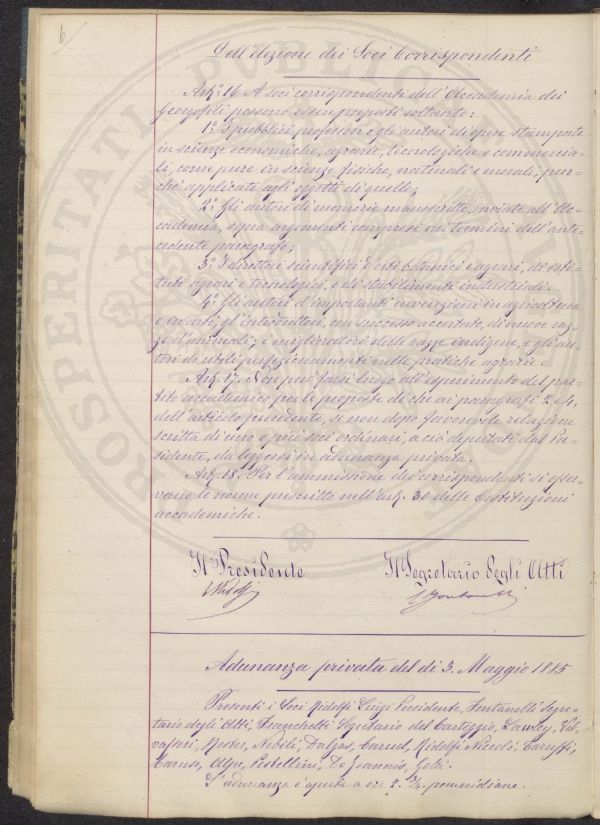 6
Dell'elezione dei Soci Corrispondenti
Art.º 16. A soci corrispondenti dell'Accademia dei
Georgofili possono essere proposti soltanto:
1º. I pubblici professori e gli autori di opere stampate
in scienze economiche, agrarie, tecnologiche e commercia-
li, come pure in scienze fisiche, naturali e morali, pur-
chè applicate agli oggetti di quelle;
2º. Gli autori di memorie manoscritte, inviate all'Ac-
cademia, sopra argomenti compresi nei termini dell'ante-
cedente paragrafo;
3º. I direttori scientifici d'orti botanici e agrari, di isti-
tuti agrari e tecnologici, e di stabilimenti industriali.
4º. Gli autori d'importanti invenzioni in agricoltura
e in arti, gl'introduttori, con successo accertato, di nuove raz-
ze d'animali, i miglioratori delle razze indigene, e gli au-
tori di utili perfezionamenti nelle pratiche agrarie.
Art. 17. Non può farsi luogo all'esperimento del par-
tito accademico per le proposte di che ai paragrafi 2 e 4,
dell'articolo precedente, se non dopo favorevole relazione
scritta di uno o più soci ordinari, a ciò deputati dal Pre-
sidente, da leggersi in adunanza privata.
Art. 18. Per l'ammissione dei corrispondenti si osser-
vano le norme prescritte nell'art. 30 delle Costituzioni
accademiche.
Il Presidente
Il Segretario degli Atti
LRidolfi
Adunanza privata del dì 3. Maggio 1885
Presenti i Soci Ridolfi Luigi Presidente, Fontanelli Segre-
tario degli Atti, Franchetti Segretario del Carteggio, Lawley, Val-
vassori, Nobili, Dalgas, Caruel, Ridolfi Niccolò,
Caruso, Alpe, Pestellini, De Joannis,
L'adunanza è aperta a ore 2. ¾ pomeridiane.
PROSPERITATI PUBLICAE